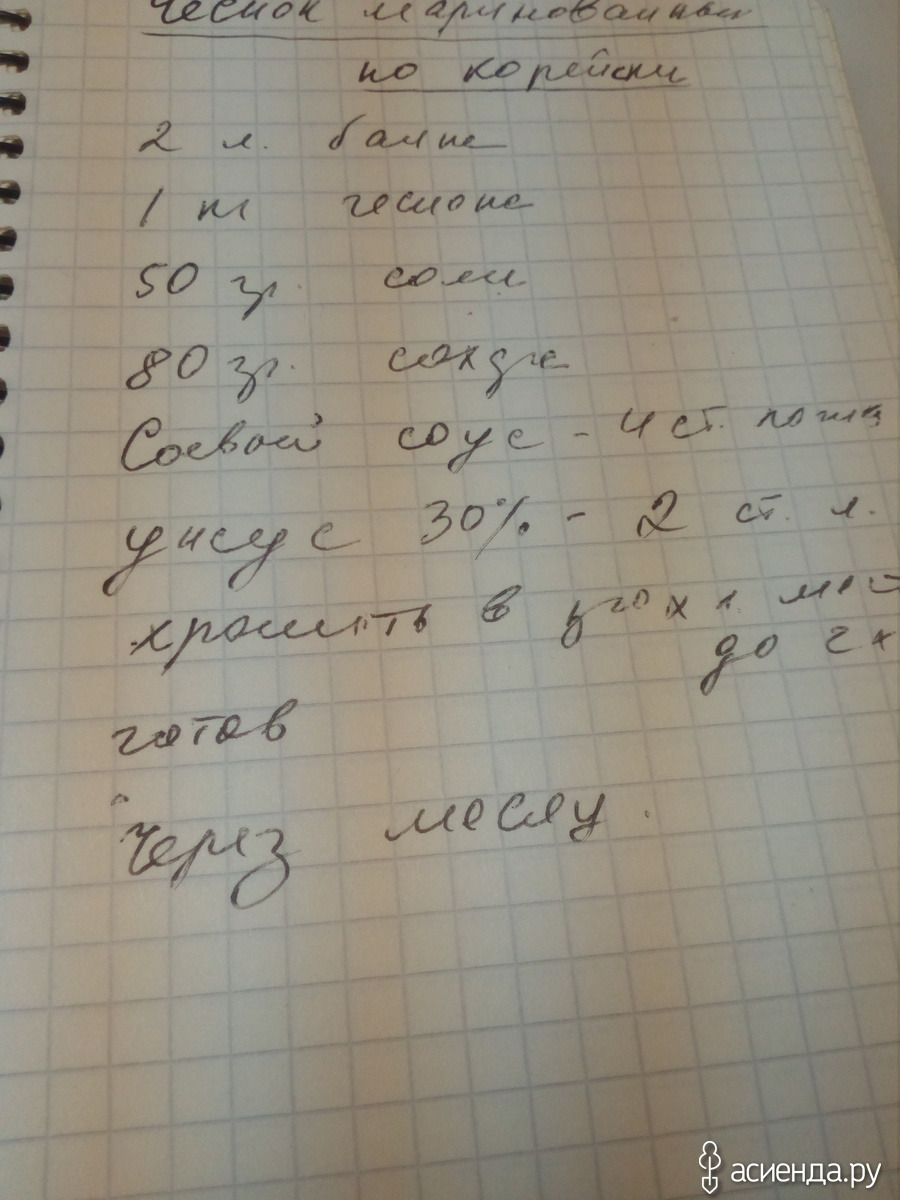 Чеснок маринованный
по корейски
2 л. банка
1 кг чеснока
50 гр. соли
80 гр. сахара
Соевый соус - 4 ст. ложки
уксус 30% - 2 ст. л.
хранить в
до 2х
готов
через месяц.
асиенда.ру